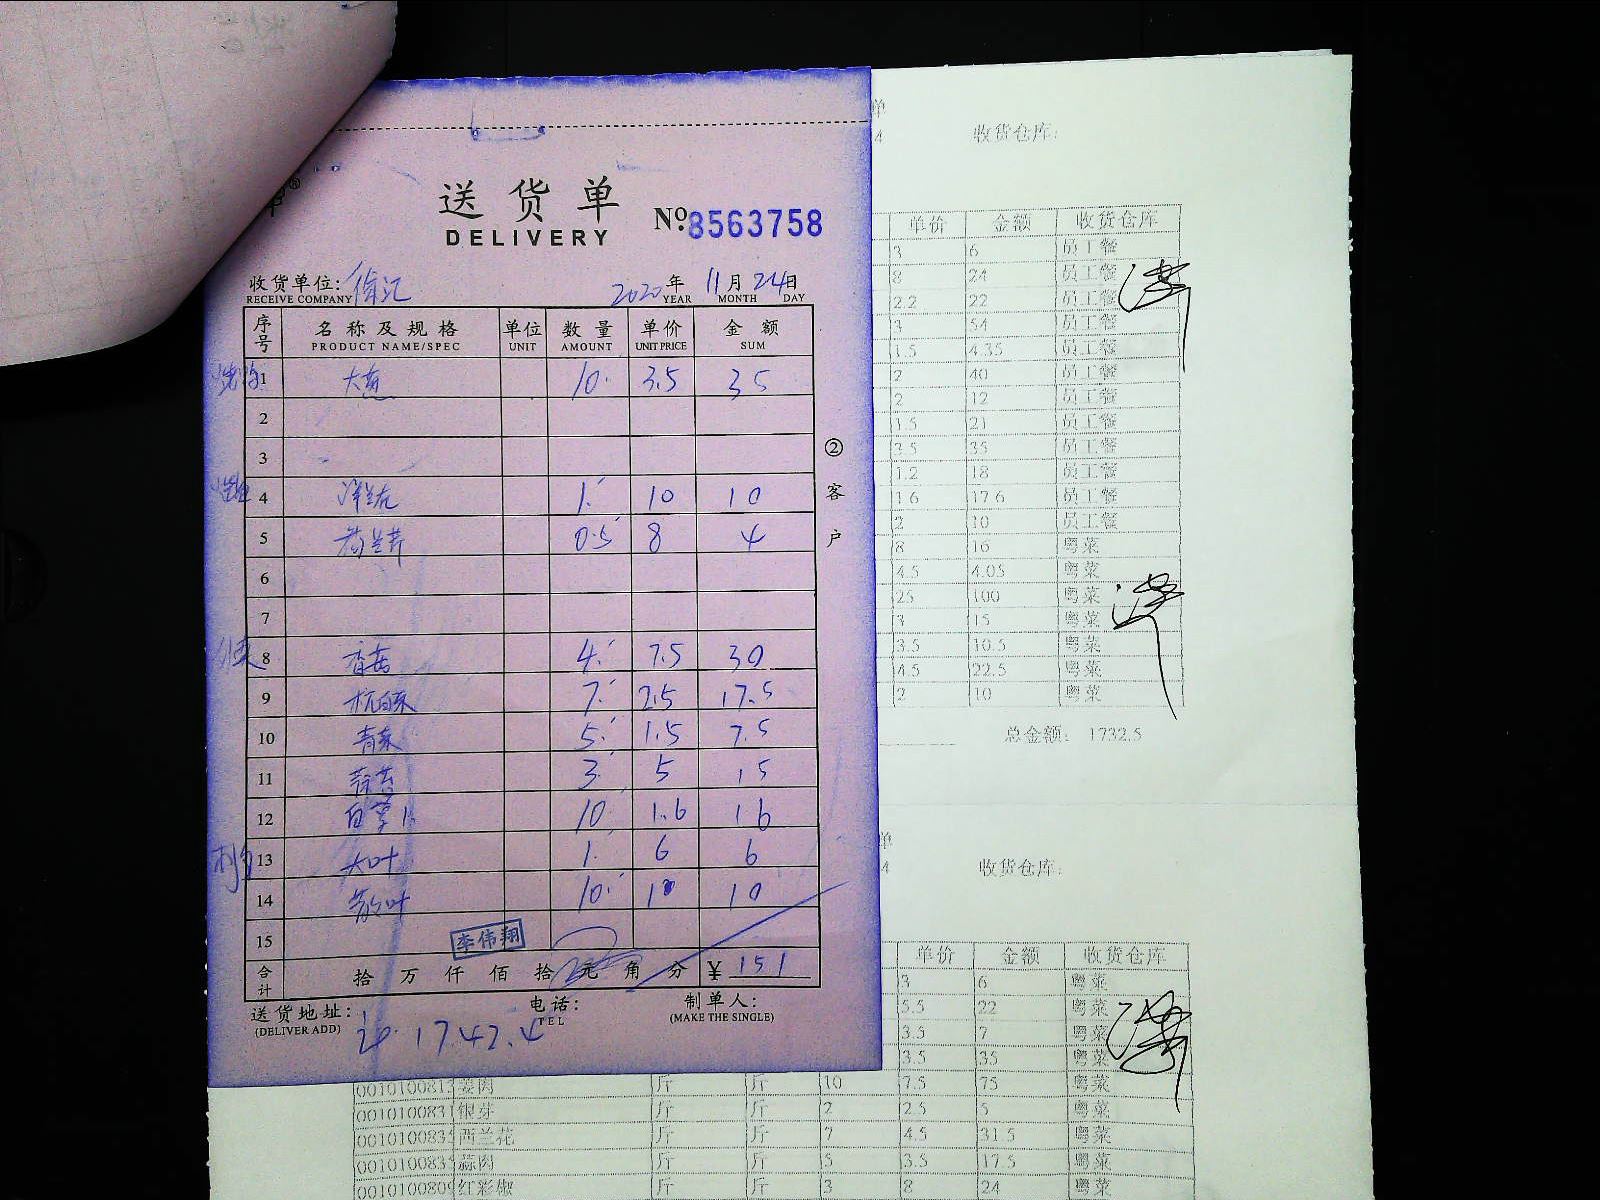 送货单
DELIVERY
№:8563758
收货单位:徐汇 2020年 11月 24日
RECEIVE COMPANY YEAR MONTH DAY
序号 名称及规格 单位 数量 单价 金额
PRODUCT NAME/SPEC UNIT AMOUNT UNIT PRICE SUM
1 大葱 10. 3.5 35
2
3
4 1. 10 10
5 荷兰芹 0.5 8 4
6
7
8 香菇 4. 7.5 30
9 杭白菜 7. 2.5 17.5
10 青菜 5. 1.5 7.5
11 3. 5 15
12 10. 1.6 16
13 大叶 1. 6 6
14 10. 1 10
15
李伟翔
合计 拾 万 仟 佰 拾 元 角 分 ¥ 151
送货地址: 电话: 制单人:
(DELIVER ADD) TEL (MAKE THE SINGLE)
1742.4
②客户
单
4 收货仓库:
单价 金额 收货仓库
3 6 员工餐
8 24 员工餐
2.2 22 员工餐
3 54 员工餐
1.5 4.35 员工餐
2 40 员工餐
2 12 员工餐
1.5 21 员工餐
3.5 35 员工餐
1.2 18 员工餐
1.6 17.6 员工餐
2 10 员工餐
8 16 粤菜
4.5 4.05 粤菜
25 100 粤菜
3 15 粤菜
3.5 10.5 粤菜
4.5 22.5 粤菜
2 10 粤菜
总金额: 1732.5
单
4 收货仓库:
单价 金额 收货仓库
3 6 粤菜
5.5 22 粤菜
3.5 7 粤菜
3.5 35 粤菜
姜肉 斤 斤 10 7.5 75 粤菜
银芽 斤 斤 2 2.5 5 粤菜
西兰花 斤 斤 7 4.5 31.5 粤菜
蒜肉 斤 斤 5 3.5 17.5 粤菜
红彩椒 斤 斤 3 8 24 粤菜